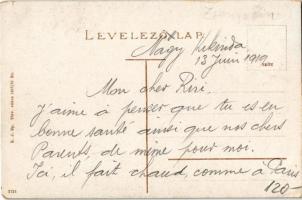 LEVELEZŐLAP
Nagy Kikinda
13 Juin 1919
Mon cher Riri.
J'aime à penser que tu es en
bonne santé ainsi que nos chers
Parents, de même pour moi.
Ici, il fait chaud, comme à Paris
120-